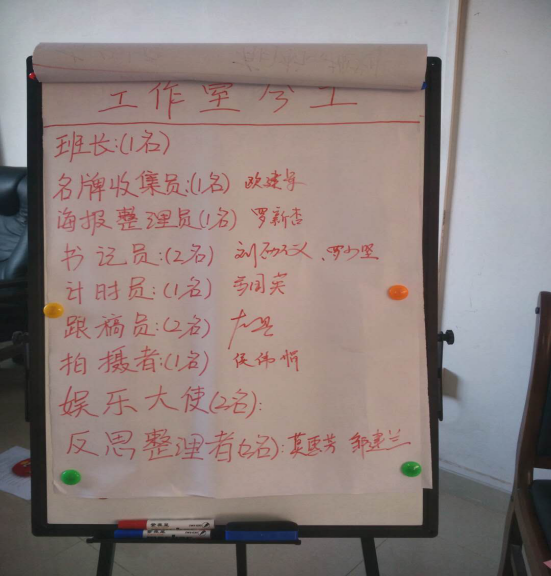 工作室分工
班长:(1名)
名牌收集员:(1名) 欧建
海报整理员(1名) 罗新杏
书记员:(2名) 刘 义、罗少坚
计时员:(1名) 国英
跟稿员:(2名)
拍摄者:(1名) 侯伟娟
娱乐大使(2名):
反思整理者(2名): 莫惠芳 邹建兰